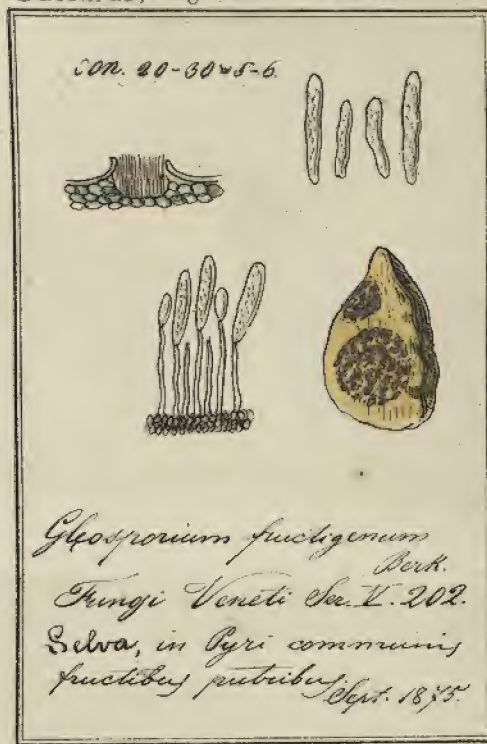 con. 20-30=5-6.
Gloosporium fructigenum
Berk.
Fungi Veneti Ser. V. 202.
Selva, in Pyri communis
fructibus putribus
Sept. 1875.